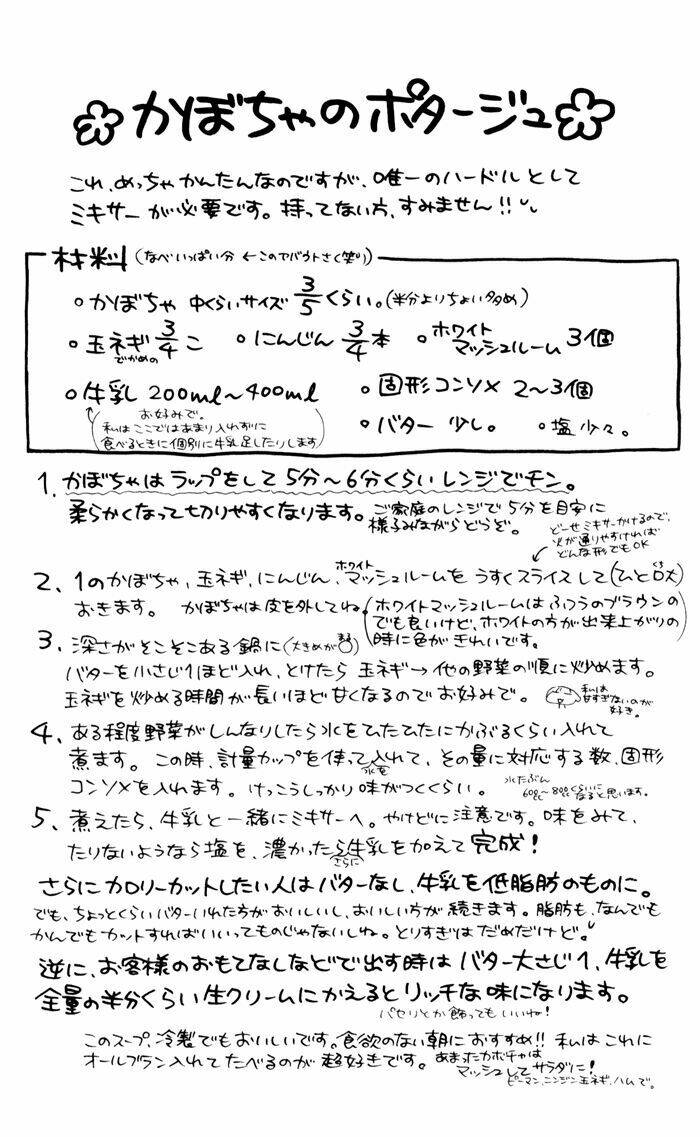 かぼちゃのポタージュ
これ、めっちゃかんたんなのですが、唯一のハードルとして
ミキサーが必要です。持ってない方、すみません!!
材料(なべいっぱい分 ←このアバウトさく笑))
○かぼちゃ 中くらいサイズ 3/5くらい。(半分よりちょい多め)
○玉ネギ 3/4こ ○にんじん 3/4本 ○ホワイトマッシュルーム 3個
でかめの
○牛乳 200ml〜400ml ○固形コンソメ 2〜3個
お好みで。
私はここではあまり入れずに
食べるときに個別に牛乳足したりします
○バター 少し。 ○塩少々。
1. かぼちゃはラップをして5分〜6分くらいレンジでチン。
柔らかくなって切りやすくなります。ご家庭のレンジで5分を目安に
様子みながらどうぞ。
どーせミキサーかけるので、
火が通りやすければ
どんな形でもOK
2. 1のかぼちゃ、玉ネギ、にんじん、ホワイトマッシュルームをうすくスライスして(ひと口大)
おきます。 かぼちゃは皮を外してね。
(ホワイトマッシュルームはふつうのブラウンの
でも良いけど、ホワイトの方が出来上がりの
時に色がきれいです。)
3. 深さがそこそこある鍋に(大きめが)
バターを小さじ1ほど入れ、とけたら 玉ネギ→他の野菜の順に炒めます。
玉ネギを炒める時間が長いほど甘くなるのでお好みで。
私は
甘すぎないのが
好き。
4. ある程度野菜がしんなりしたら水をひたひたにかぶるくらい入れて
煮ます。この時、計量カップを使って水を入れて、その量に対応する数、固形
コンソメを入れます。けっこうしっかり味がつくくらい。
水たぶん
600cc〜800ccくらいに
なると思います。
5. 煮えたら、牛乳と一緒にミキサーへ。やけどに注意です。味をみて、
たりないようなら塩を、濃かったらさらに牛乳を加えて完成!
さらにカロリーカットしたい人はバターなし、牛乳を低脂肪のものに。
でも、ちょっとくらいバターいれた方がおいしいし、おいしい方が続きます。脂肪も、なんでも
かんでもカットすればいいってものじゃないしね。とりすぎはだめだけど。
逆に、お客様のおもてなしなどで出す時はバター大さじ1、牛乳を
全量の半分くらい生クリームにかえるとリッチな味になります。
パセリとか飾ってもいいね!
このスープ、冷製でもおいしいです。食欲のない朝におすすめ!! 私はこれに
オールブラン入れてたべるのが超好きです。
あまったカボチャは
マッシュしてサラダに!
ピーマン、ニンジン、玉ネギ、ハムで。